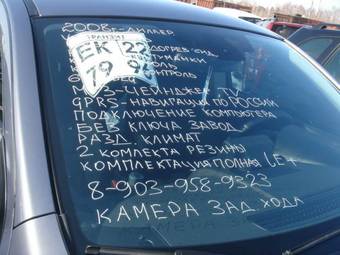 2008г.-ЛИЗИНГ
ТРАНЗИТ
ЕК 22
19
ПОДОГРЕВ
ТУМАНКИ
КОНТРОЛЬ
МП3-ЧЕЙНДЖЕР, TV
GPRS-НАВИГАЦИЯ ПО РОССИИ
ПОДКЛЮЧЕНИЕ КОМПЬЮТЕРА
БЕЗ КЛЮЧА ЗАВОД.
РАЗД. КЛИМАТ
2 КОМПЛЕКТА РЕЗИНЫ
КОМПЛЕКТАЦИЯ ПОЛНАЯ
8-903-958-9323
КАМЕРА ЗАД. ХОДА